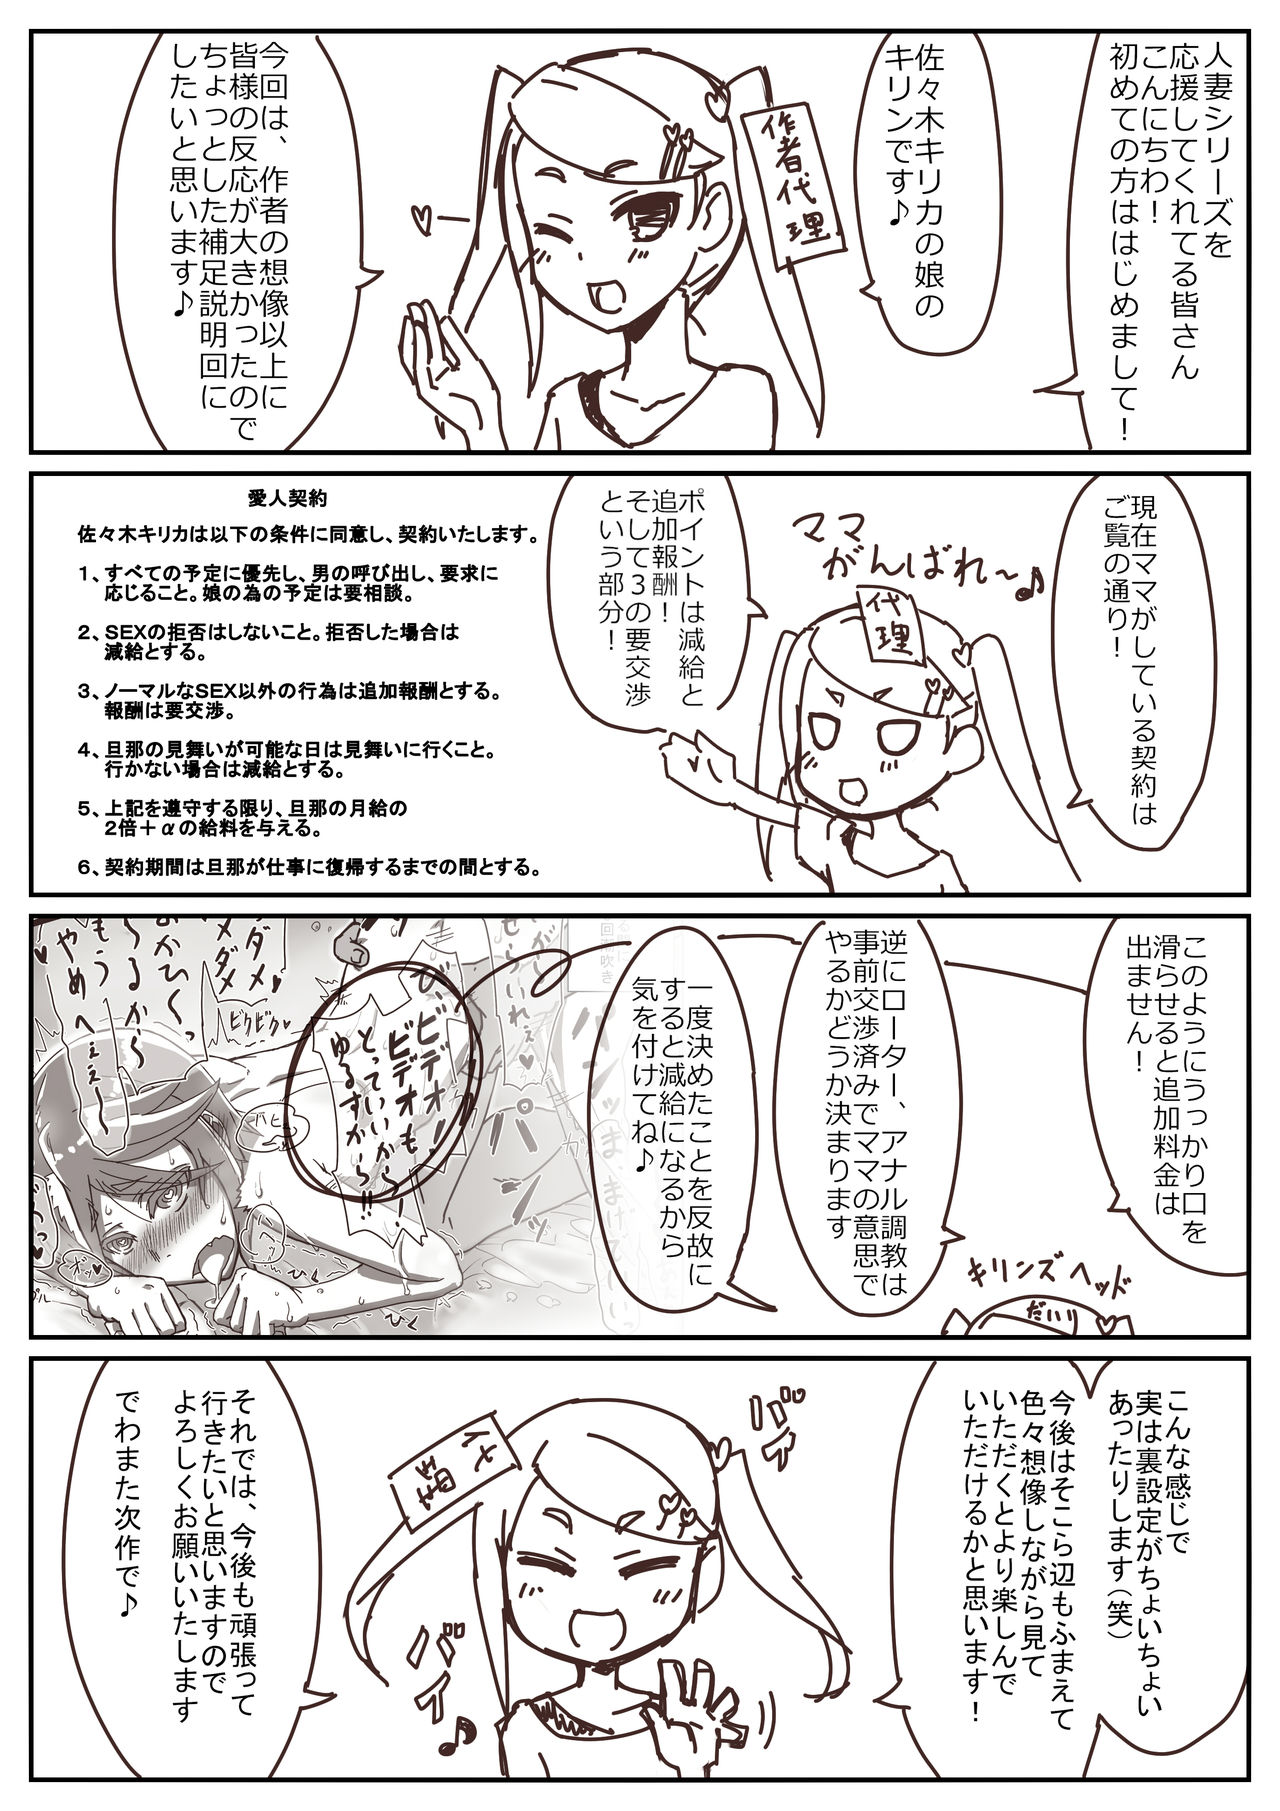 人妻シリーズを
応援してくれてる皆さん
こんにちわ！
初めての方ははじめまして！
佐々木キリカの娘の
キリンです♪
作者代理
今回は、作者の想像以上に
皆様の反応が大きかったので
ちょっとした補足説明回に
したいと思います♪
現在ママがしている契約は
ご覧の通り！
ママ
がんばれ～♪
代理
ポイントは減給と
追加報酬！
そして3の要交渉
という部分！
愛人契約
佐々木キリカは以下の条件に同意し、契約いたします。
1、すべての予定に優先し、男の呼び出し、要求に
応じること。娘の為の予定は要相談。
2、SEXの拒否はしないこと。拒否した場合は
減給とする。
3、ノーマルなSEX以外の行為は追加報酬とする。
報酬は要交渉。
4、旦那の見舞いが可能な日は見舞いに行くこと。
行かない場合は減給とする。
5、上記を遵守する限り、旦那の月給の
2倍＋αの給料を与える。
6、契約期間は旦那が仕事に復帰するまでの間とする。
このようにうっかり口を
滑らせると追加料金は
出ません！
キリンズヘッド
だいり
逆にローター、アナル調教は
事前交渉済みでママの意思で
やるかどうか決まります
一度決めたことを反故に
すると減給になるから
気を付けてね♪
び、ビデオ！
ビデオも
とっていいから！
ゆるすから！！
ダメ
ダメダメ
もう
やめへぇぇ～
ビクビク♥
パ
ひく
ひく
こんな感じで
実は裏設定がちょいちょい
あったりします（笑）
今後はそこら辺もふまえて
色々想像しながら見て
いただくとより楽しんで
いただけるかと思います！
バァ
代理
バイ
♪
それでは、今後も頑張って
行きたいと思いますので
よろしくお願いいたします
でわまた次作で♪